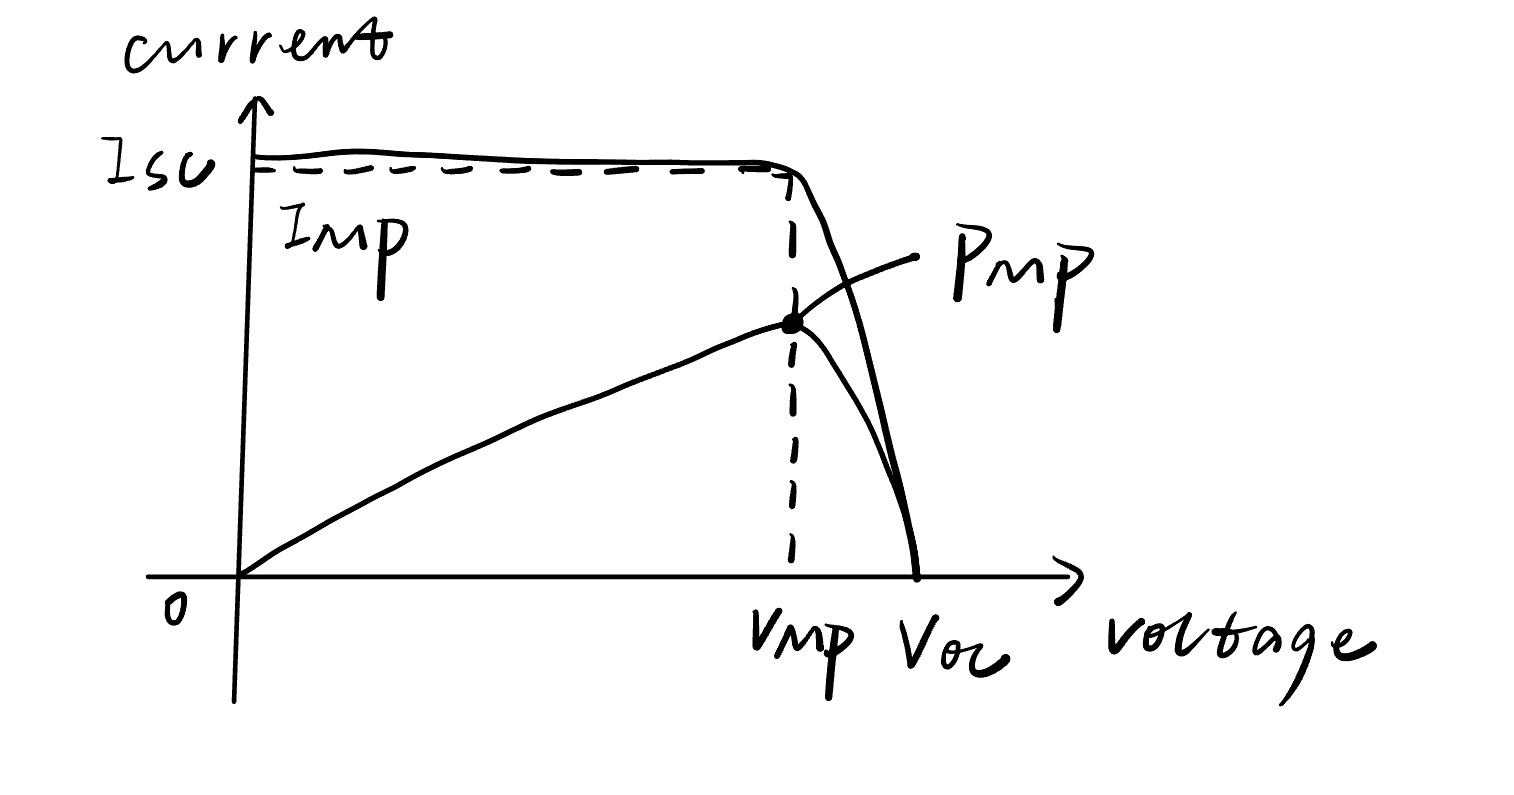 current
Isc
Imp
Pmp
0
Vmp Voc voltage